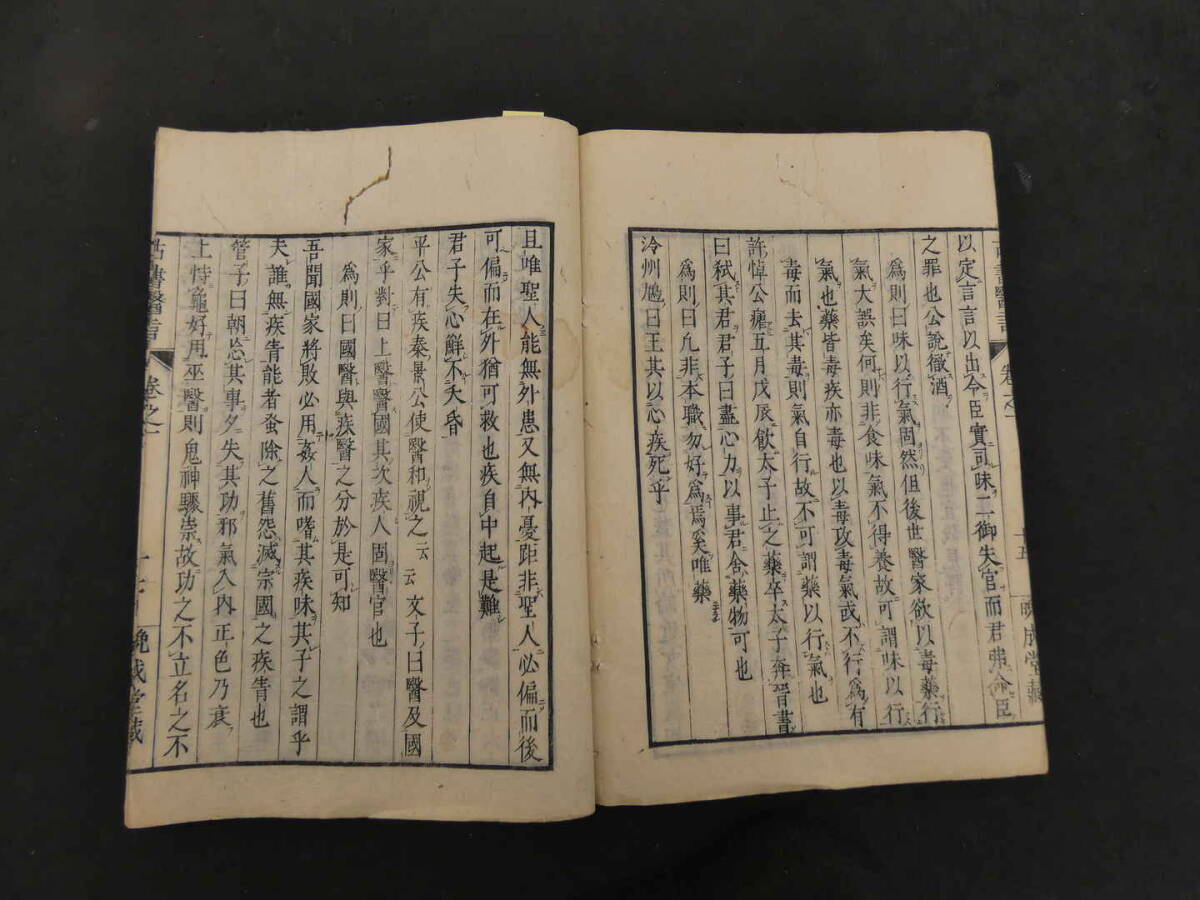 以定言言以出令臣實司味二御失官而君弗命臣
之罪也公說徹酒
爲則曰味以行氣固然但後世醫家欲以毒藥行
氣大誤矣何則非食味氣不得養故可謂味以行
氣也藥皆毒疾亦毒也以毒攻毒氣或不行爲有
毒而去其毒則氣自行故不可謂藥以行氣也
許悼公瘧五月戊辰飮太子止之藥卒太子奔晉書
曰弑其君君子曰盡心力以事君舍藥物可也
爲則曰凡非本職勿好爲焉矣唯藥
泠州鳩曰王其以心疾死乎
古書醫言
卷之一
十五
晚成堂藏
且唯聖人能無外患又無内憂距非聖人必偏而後
可偏而在外猶可救也疾自中起是難
君子失心鮮不夭昏
平公有疾秦景公使醫和視之云云文子曰醫及國
家乎對曰上醫醫國其次疾人固醫官也
爲則曰國醫與疾醫之分於是可知
吾聞國家將敗必用姦人而嗜其疾味其子之謂乎
夫誰無疾眚能者蚤除之舊怨滅宗國之疾眚也
管子曰朝忘其事夕失其功邪氣入内正色乃衰
上恃龜好用巫醫則鬼神驟祟故功之不立名之不
古書醫言
卷之一
晚成堂藏